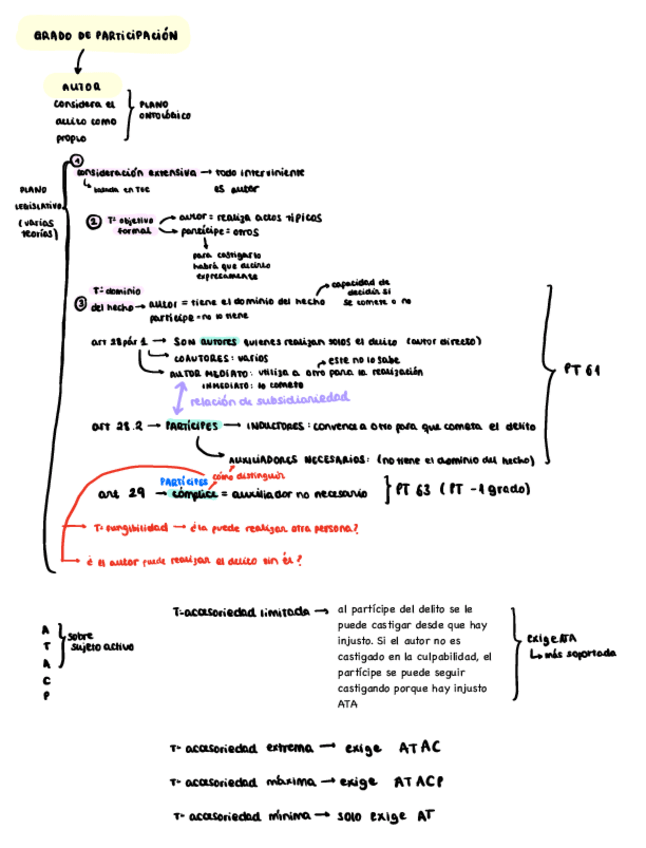 GRADO DE PARTICIPACIÓN
AUTOR
considera el
delito como
propio
PLANO
ONTOLÓGICO
PLANO
LEGISLATIVO
(varias
teorías)
① consideración extensiva → todo interviniente
es autor
basada en TOC
② Tª objetivo
formal
autor = realiza actos típicos
partícipe = otros
para castigarlo
habrá que decirlo
expresamente
③ Tª dominio
del hecho → autor = tiene el dominio del hecho
capacidad de
decidir si
se comete o no
partícipe = no lo tiene
art 28 pár 1 → SON AUTORES quienes realizan solos el delito (autor directo)
COAUTORES: varios
este no lo sabe
AUTOR MEDIATO: utiliza a otro para la realización
INMEDIATO: lo comete
relación de subsidiariedad
art 28.2 → PARTÍCIPES → INDUCTORES: convence a otro para que cometa el delito
AUXILIADORES NECESARIOS: (no tiene el dominio del hecho)
PT 61
PARTÍCIPES
cómo distinguir
art 29 → cómplice = auxiliador no necesario
PT 63 (PT -1 grado)
Tª fungibilidad → ¿la puede realizar otra persona?
¿el autor puede realizar el delito sin él?
A
T
A
C
P
sobre
sujeto activo
T-accesoriedad limitada →
al partícipe del delito se le
puede castigar desde que hay
injusto. Si el autor no es
castigado en la culpabilidad, el
partícipe se puede seguir
castigando porque hay injusto
ATA
exige ATA
más soportada
Tª accesoriedad extrema → exige ATAC
Tª accesoriedad máxima → exige ATACP
Tª accesoriedad mínima → solo exige AT